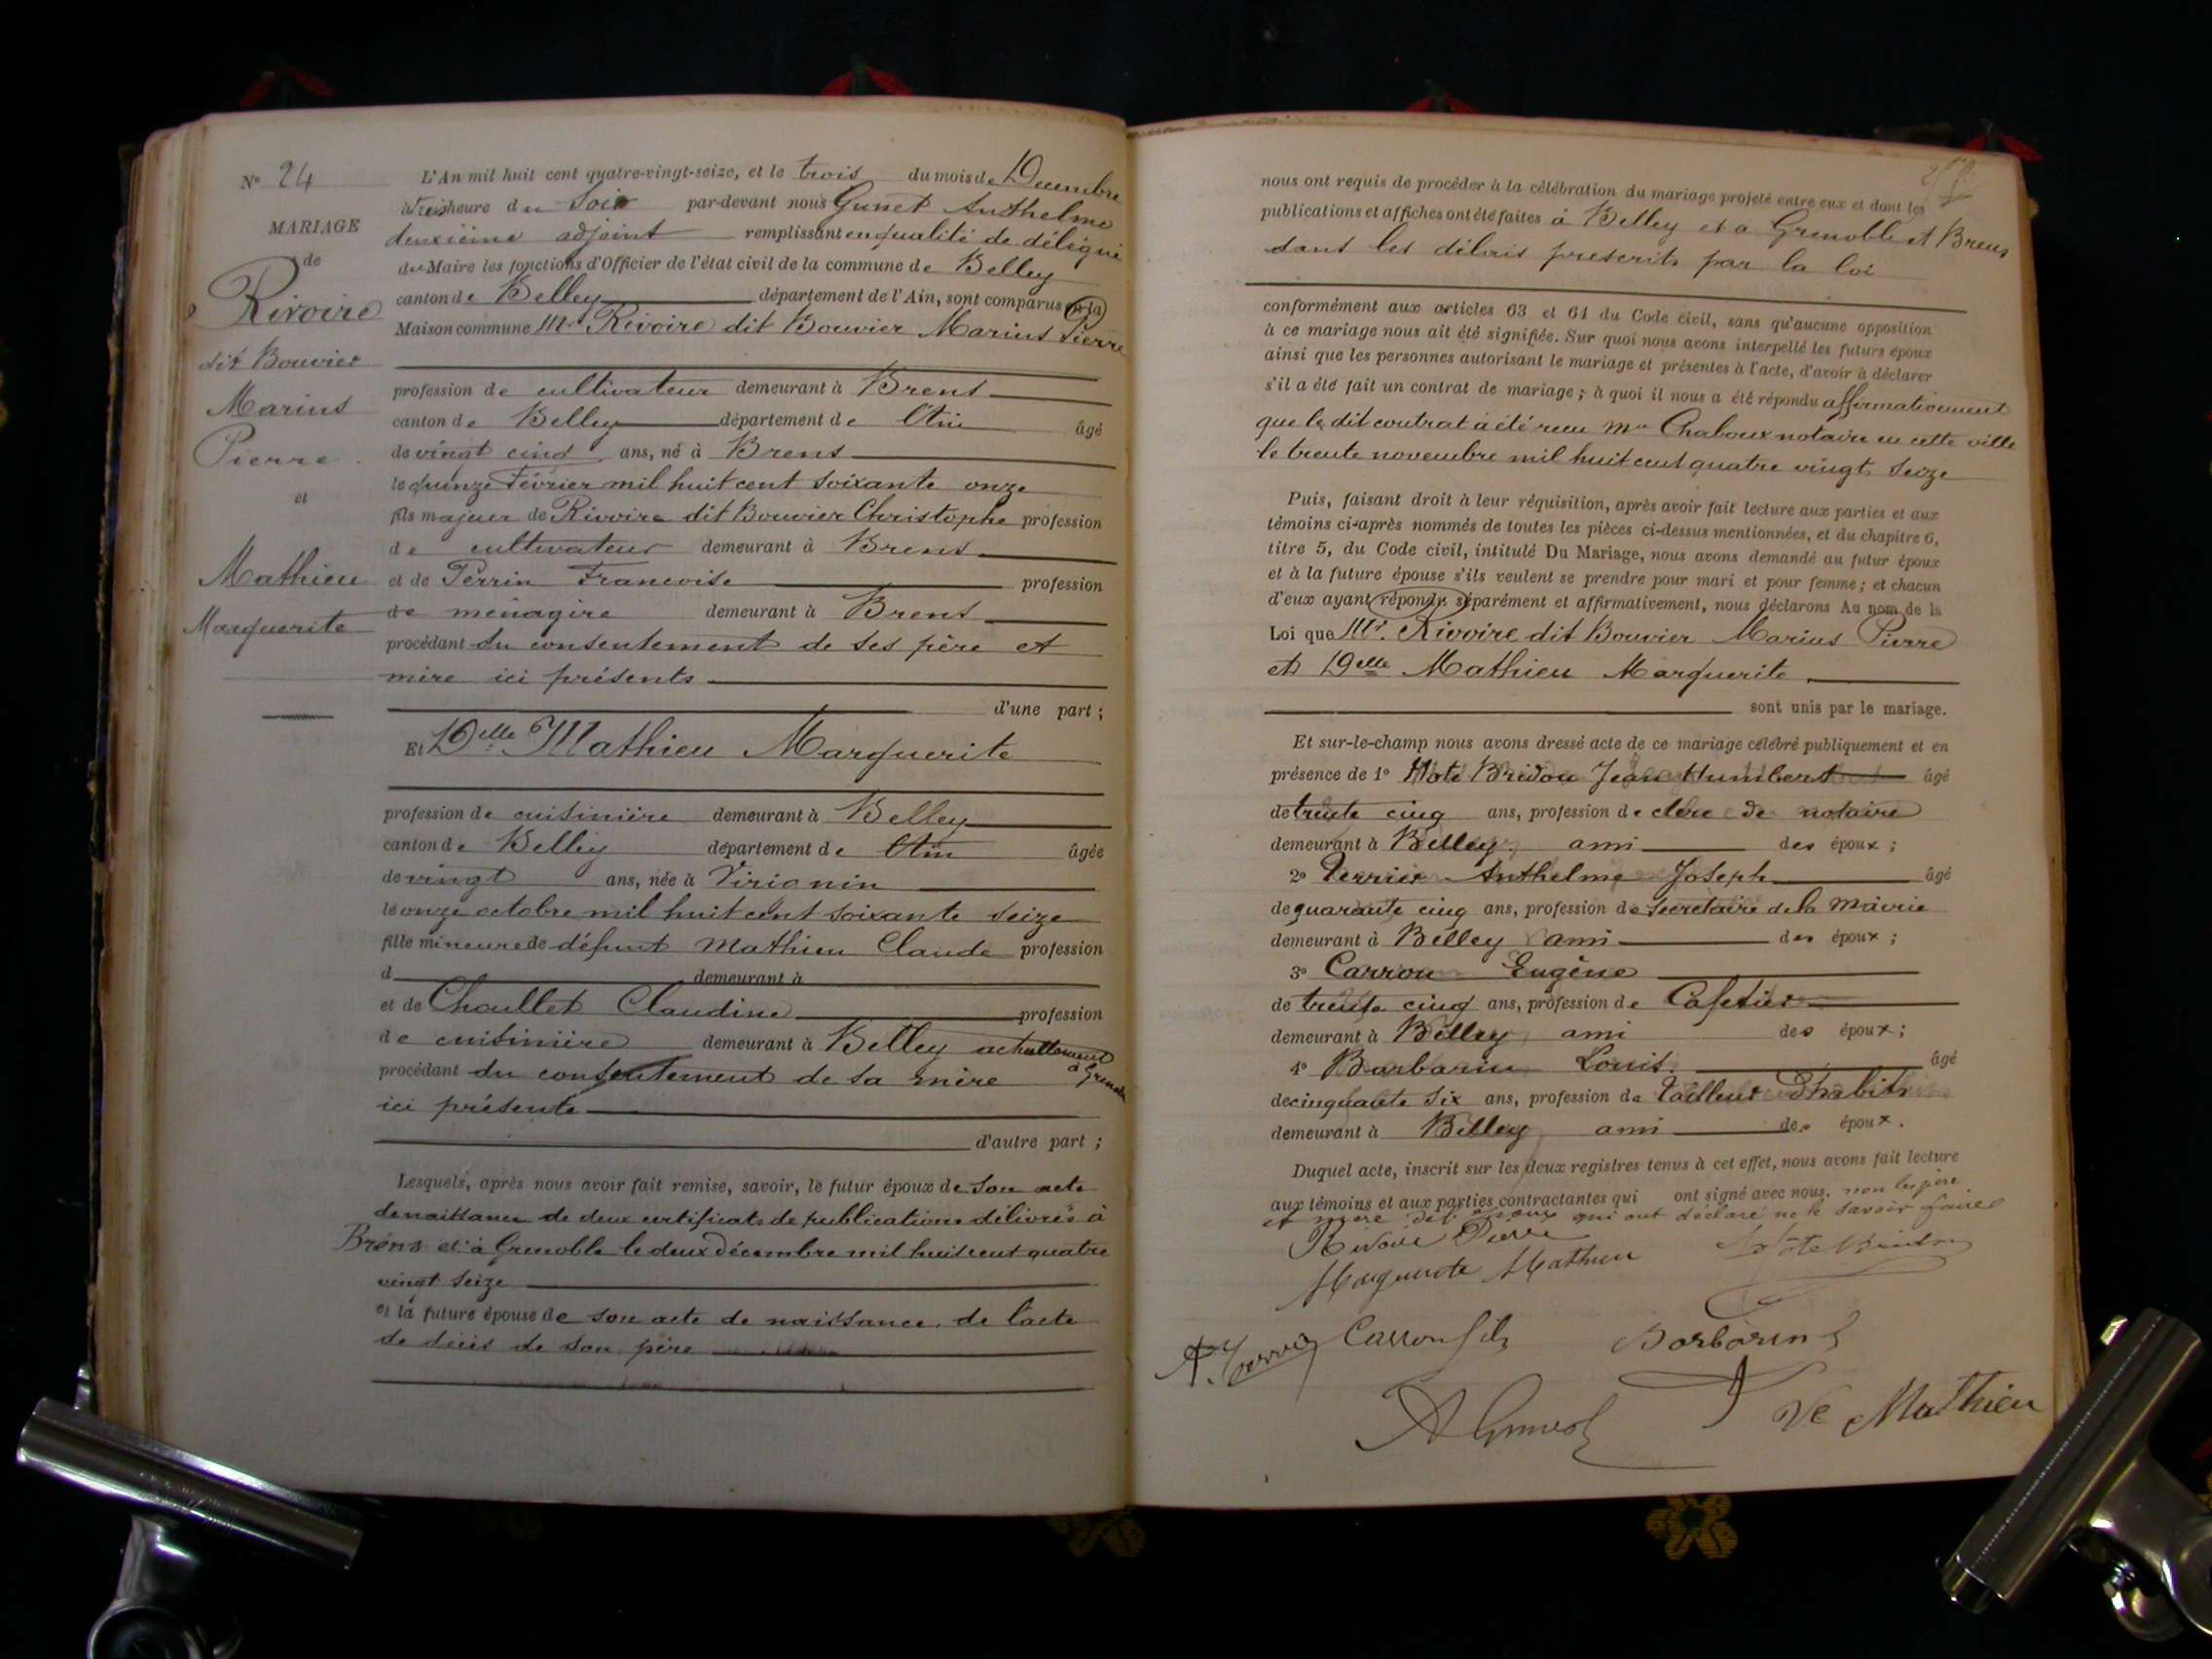 N° 24
MARIAGE
de
Rivoire
dit Bouvier
Marius
Pierre
et
Mathieu
Marguerite
L'An mil huit cent quatre-vingt-seize, et le trois du mois de Décembre
à trois heure du Soir par-devant nous Gunet Anthelme
deuxième adjoint remplissant en qualité de délégué
du Maire les fonctions d'Officier de l'état civil de la commune de Belley
canton de Belley département de l'Ain, sont comparus en la
Maison commune Mr Rivoire dit Bouvier Marius Pierre
profession de cultivateur demeurant à Brens
canton de Belley département de l'Ain âgé
de vingt cinq ans, né à Brens
le quinze Février mil huit cent soixante onze
fils majeur de Rivoire dit Bouvier Christophe profession
de cultivateur demeurant à Brens
et de Perrin Francoise profession
de ménagère demeurant à Brens
procédant du consentement de ses père et
mère ici présents
d'une part ;
Et Delle Mathieu Marguerite
profession de cuisinière demeurant à Belley
canton de Belley département de l'Ain âgée
de vingt ans, née à Virignin
le onze octobre mil huit cent soixante seize
fille mineure de défunt Mathieu Claude profession
d demeurant à
et de Choullet Claudine profession
de cuisinière demeurant à Belley actuellement à Grenoble
procédant du consentement de sa mère
ici présente
d'autre part ;
Lesquels, après nous avoir fait remise, savoir, le futur époux de son acte
de naissance de deux certificats de publications délivrés à
Brens et à Grenoble le deux décembre mil huit cent quatre
vingt seize
et la future épouse de son acte de naissance, de l'acte
de décès de son père
nous ont requis de procéder à la célébration du mariage projeté entre eux et dont les
publications et affiches ont été faites à Belley et a Grenoble et Brens
dans les délais prescrits par la loi
conformément aux articles 63 et 64 du Code civil, sans qu'aucune opposition
à ce mariage nous ait été signifiée. Sur quoi nous avons interpellé les futurs époux
ainsi que les personnes autorisant le mariage et présentes à l'acte, d'avoir à déclarer
s'il a été fait un contrat de mariage ; à quoi il nous a été répondu affirmativement
que le dit contrat a été reçu Me Chaboux notaire en cette ville
le trente novembre mil huit cent quatre vingt seize
Puis, faisant droit à leur réquisition, après avoir fait lecture aux parties et aux
témoins ci-après nommés de toutes les pièces ci-dessus mentionnées, et du chapitre 6,
titre 5, du Code civil, intitulé Du Mariage, nous avons demandé au futur époux
et à la future épouse s'ils veulent se prendre pour mari et pour femme ; et chacun
d'eux ayant répondu séparément et affirmativement, nous déclarons Au nom de la
Loi que Mr. Rivoire dit Bouvier Marius Pierre
et Delle Mathieu Marguerite
sont unis par le mariage.
Et sur-le-champ nous avons dressé acte de ce mariage célébré publiquement et en
présence de 1° Hote Bridou Jean Humbert âgé
de trente cinq ans, profession de clerc de notaire
demeurant à Belley ami des époux ;
2° Verrier Anthelme Joseph âgé
de quarante cinq ans, profession de Secrétaire de la Mairie
demeurant à Belley ami des époux ;
3° Carron Eugène
de trente cinq ans, profession de Cafetier
demeurant à Belley ami des époux ;
4° Barbarin Louis. âgé
de cinquante six ans, profession de Tailleur d'habits
demeurant à Belley ami des époux.
Duquel acte, inscrit sur les deux registres tenus à cet effet, nous avons fait lecture
aux témoins et aux parties contractantes qui ont signé avec nous. non les père
et mère de l'époux qui ont déclaré ne le savoir faire
Rivoire Pierre
Marguerite Mathieu
Carron fils Barbarin
Ve Mathieu